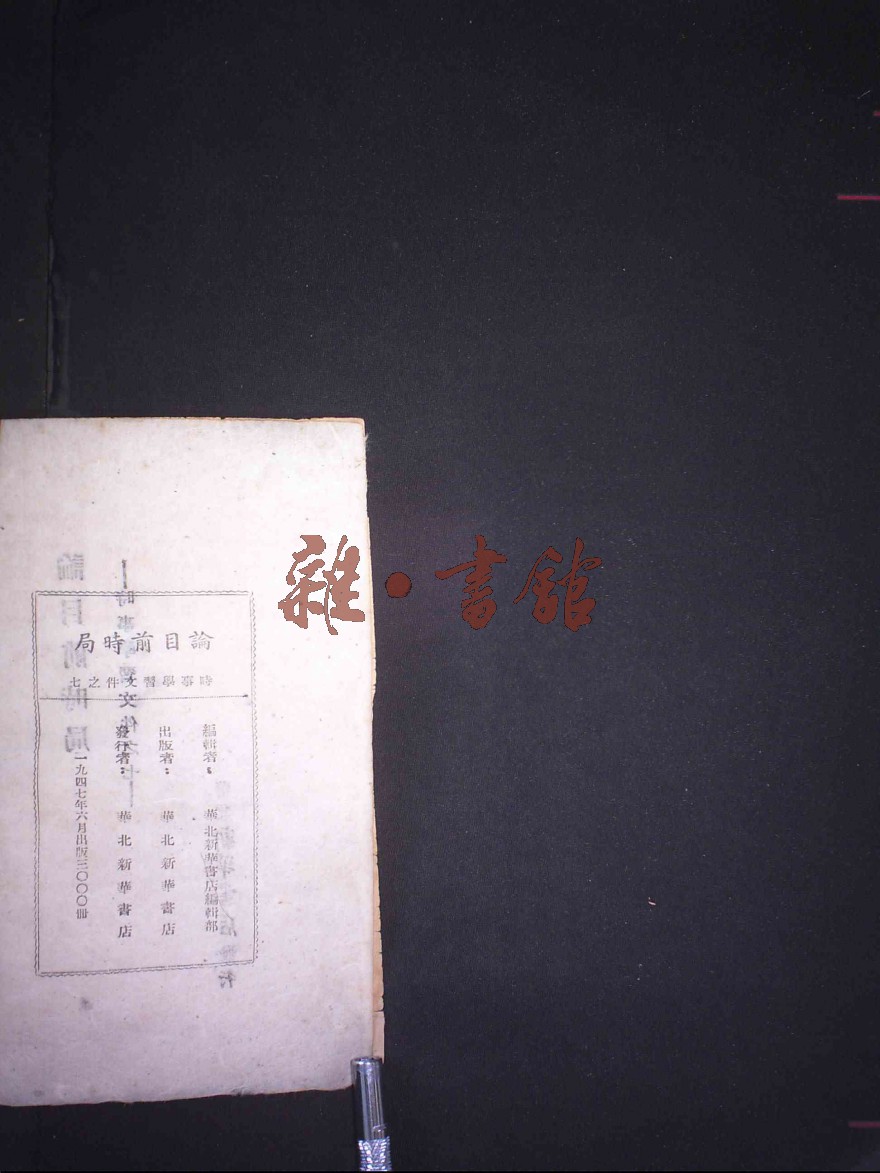 論目前時局
時事學習文件之七
編輯者：華北新華書店編輯部
出版者：華北新華書店
發行者：華北新華書店
一九四七年六月出版三〇〇〇冊
雜·書館